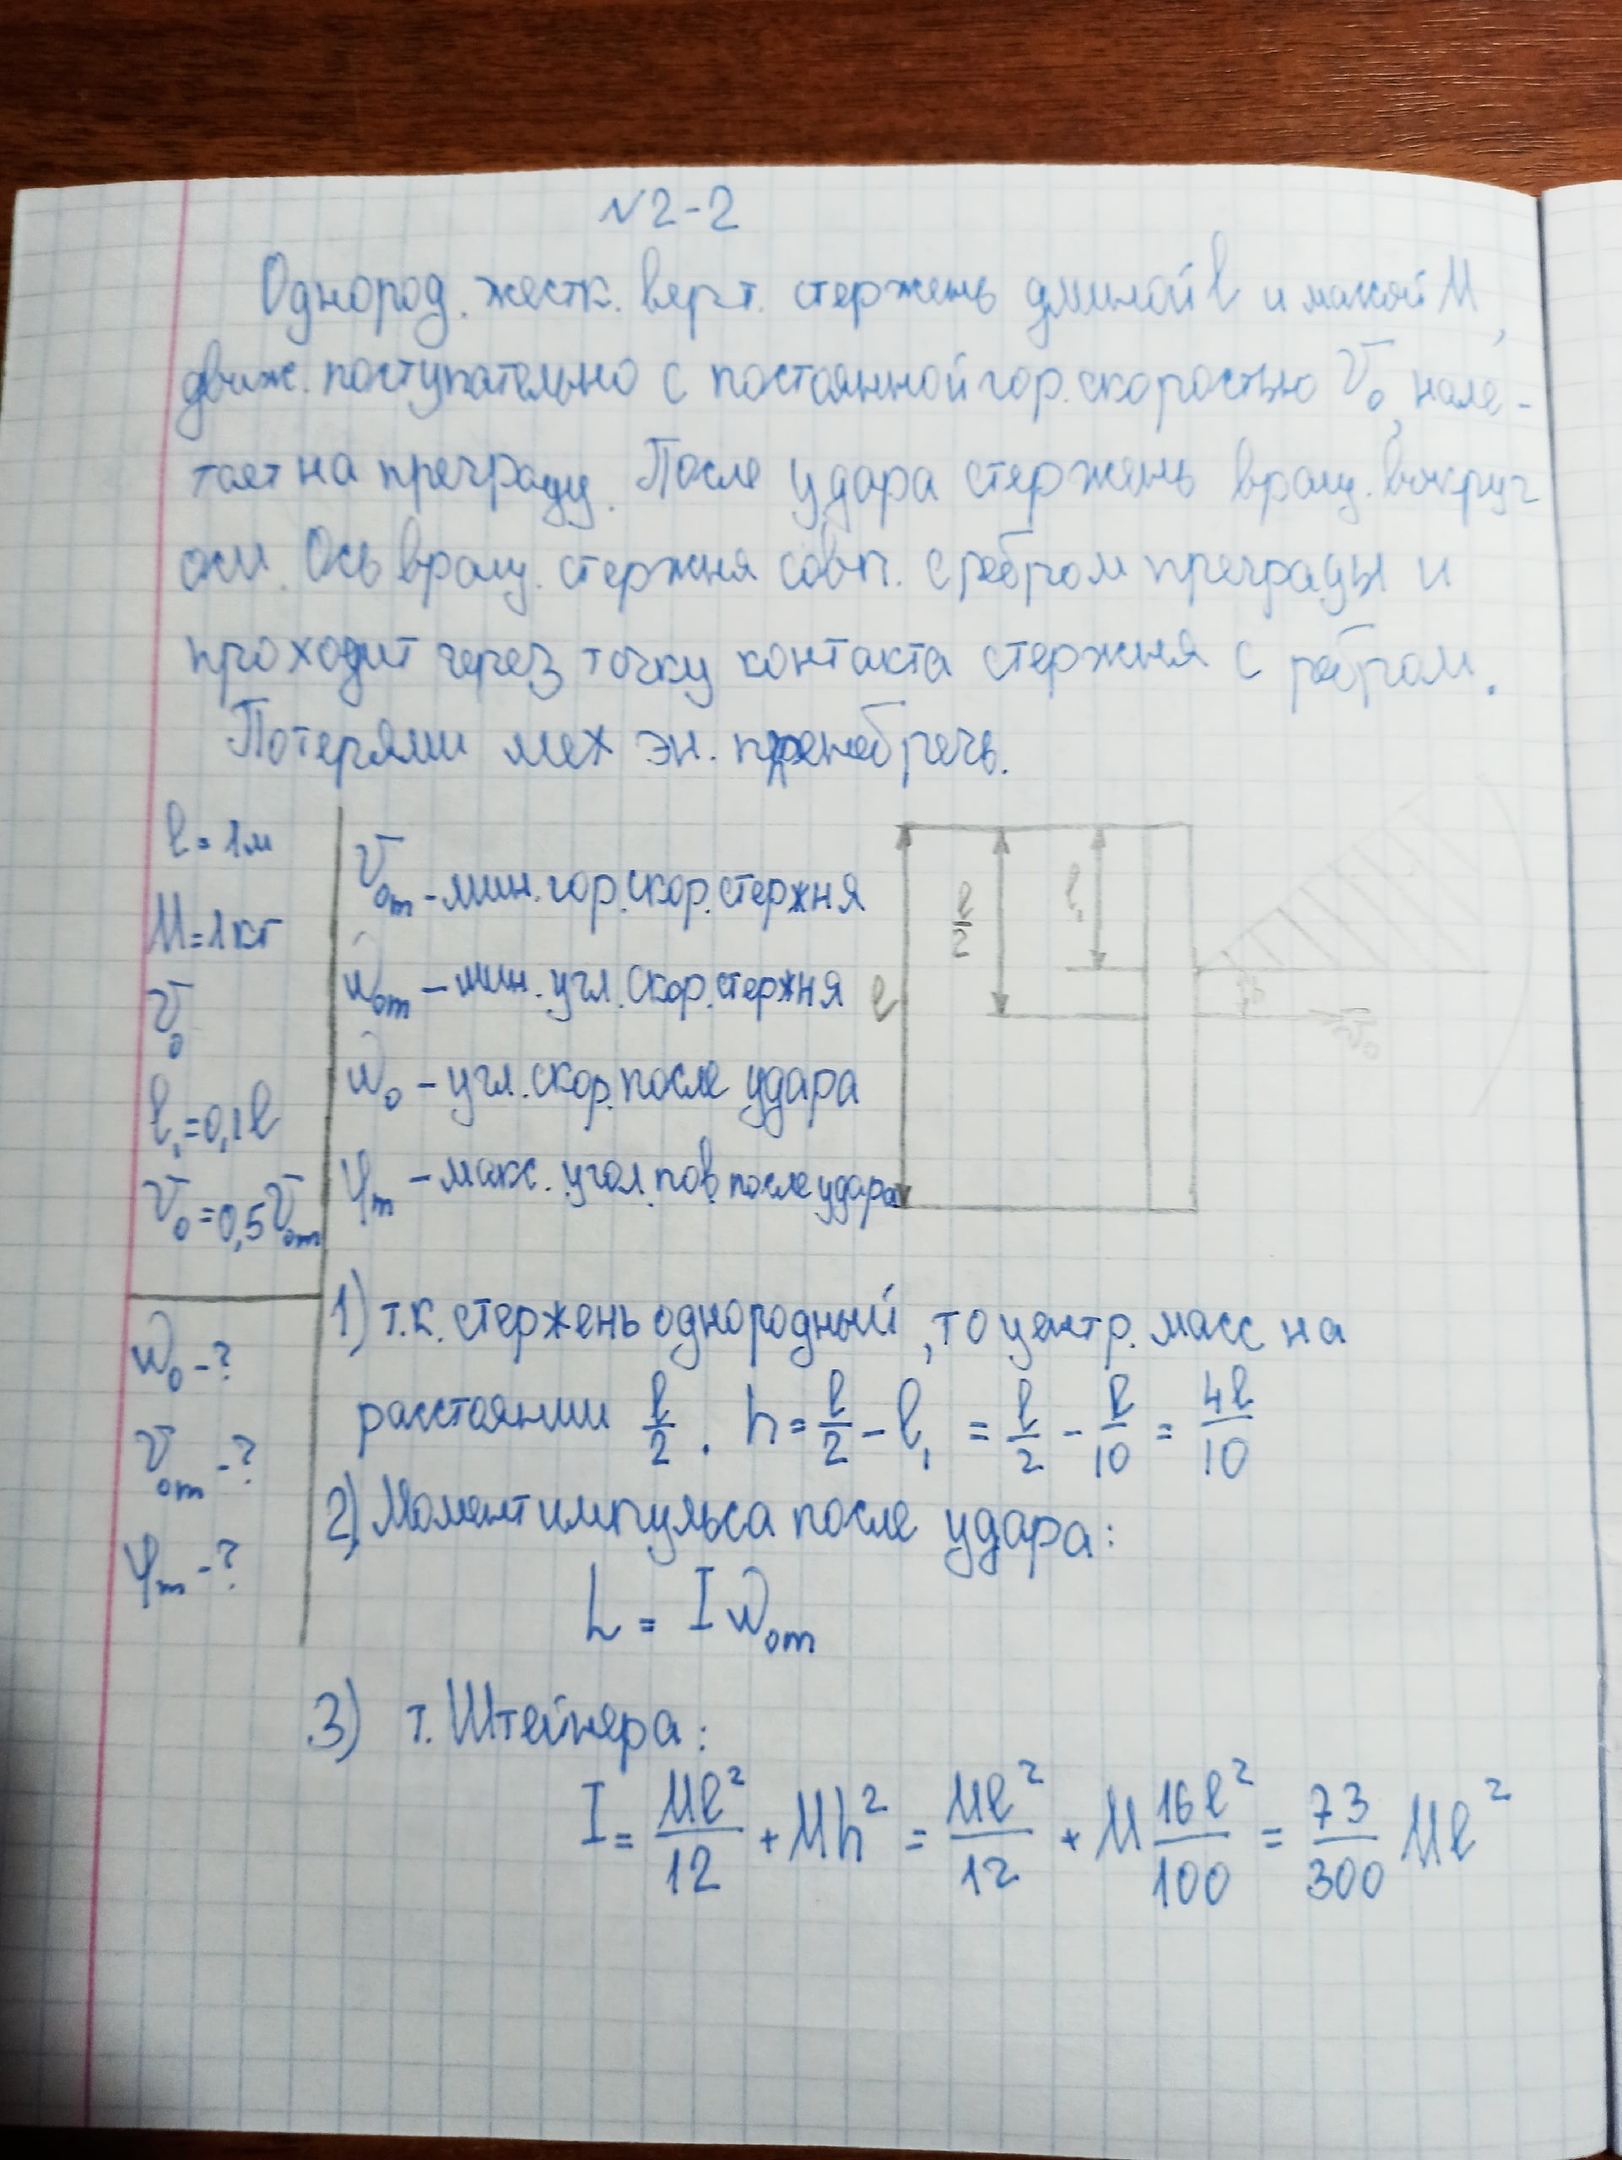 №2-2
Однород. жестк. верт. стержень длиной l и массой M,
движ. поступательно с постоянной гор. скоростью V₀, нале-
тает на преграду. После удара стержень вращ. вокруг
оси. Ось вращ. стержня совп. с ребром преграды и
проходит через точку контакта стержня с ребром.
Потерями мех эн. пренебречь.
l = 1м
M = 1кг
V₀
l₁ = 0,1l
V₀ = 0,5V₀m
ω₀ - ?
V₀m - ?
φm - ?
V₀m - мин. гор. скор. стержня
ω₀m - мин. угл. скор. стержня
ω₀ - угл. скор. после удара
φm - макс. угол. пов после удара
l
l/2
l₁
V₀
1) т.к. стержень однородный, то центр. масс на
расстоянии l/2 . h = l/2 - l₁ = l/2 - l/10 = 4l/10
2) Момент импульса после удара:
L = Iω₀m
3) т. Штейнера:
I = Ml²/12 + Mh² = Ml²/12 + M 16l²/100 = 73/300 Ml²